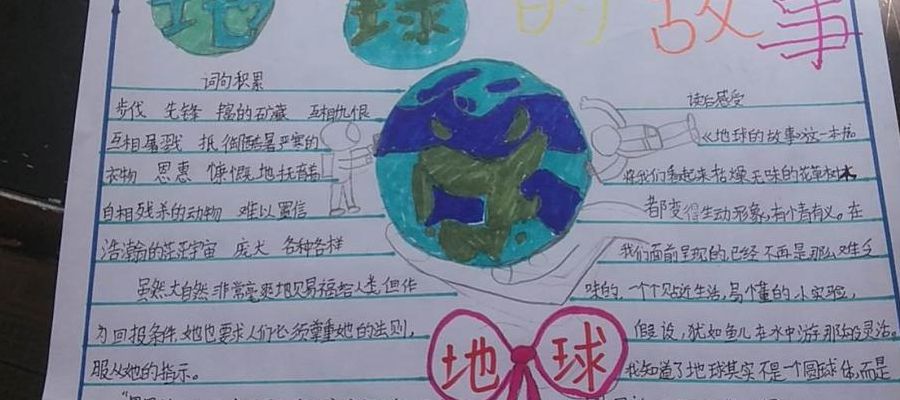 地球的故事
词句积累
步伐 先锋 富的矿藏 互相仇恨
互相屠戮 抵御酷暑严寒的
衣物 恩惠 慷慨地抚育着
自相残杀的动物 难以置信
浩瀚的茫茫宇宙 庞大 各种各样
虽然大自然非常豪爽地赐福给人类,但作
为回报条件,她也要求人们必须尊重她的法则,
服从她的指示。
读后感受
《地球的故事》这一本书
将我们看起来枯燥无味的花草树木
都变得生动形象,有情有义。在
我们面前呈现的已经不再是那么难受
味的,一个个贴近生活,易懂的小实验,
假设,犹如鱼儿在水中游那般灵活。
我知道了地球其实不是一个圆球体,而是
地球